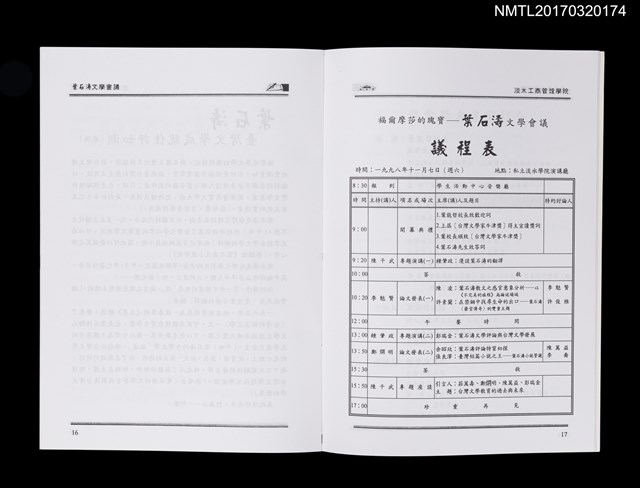 NMTL20170320174
葉石濤文學會議
淡水工商管理學院
福爾摩莎的瑰寶──葉石濤文學會議
議程表
時間:一九九八年十一月七日(週六) 地點:私立淡水學院演講廳
8:30 報到 學生活動中心音樂廳
時間 主持(講)人 項目或場次 主席(講)人及題目 特約討論人
9:00 開幕典禮
1.葉能哲校長致歡迎詞
2.上屆〔台灣文學家牛津獎〕得主宣讀獎詞
3.葉校長頒獎〔台灣文學家牛津獎〕
4.葉石濤先生致答詞
9:20 陳千武 專題演講(一) 鍾肇政:漫談葉石濤的翻譯
10:00 茶敘
10:20 李魁賢 論文發表(一)
陳凌:葉石濤散文之感官意象分析──以
許素蘭: 的出口──葉石濤
李魁賢
許俊雅
12:00 午餐時間
13:00 鍾肇政 專題演講(二) 彭瑞金:葉石濤文學評論與台灣文學發展
13:50 鄭烱明 論文發表(二)
余昭玟:葉石濤評論特質初探
張良澤:臺灣短篇小說之王──葉石濤小說管議
陳萬益
李喬
15:30 茶敘
15:50 陳千武 專題座談
引言人:莊萬壽、鄭烱明、陳萬益、彭瑞金
主題:台灣文學教育的過去與未來
17:00 珍重再見
16
17